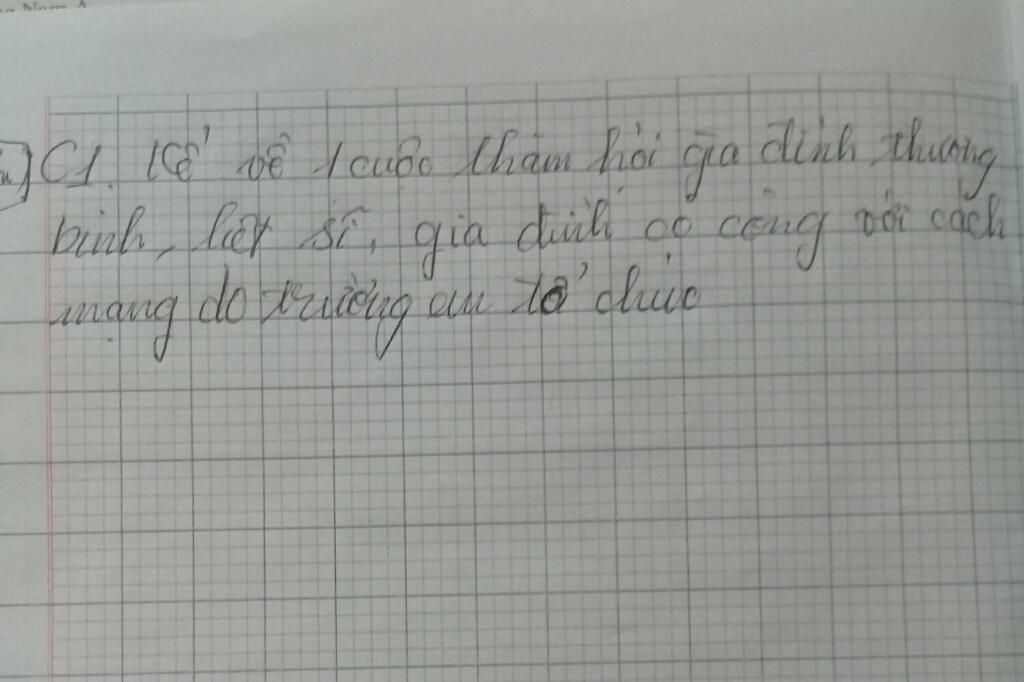 C1. Kể về 1 cuộc thăm hỏi gia đình thương
binh, liệt sĩ, gia đình có công với cách
mạng do trường em tổ chức